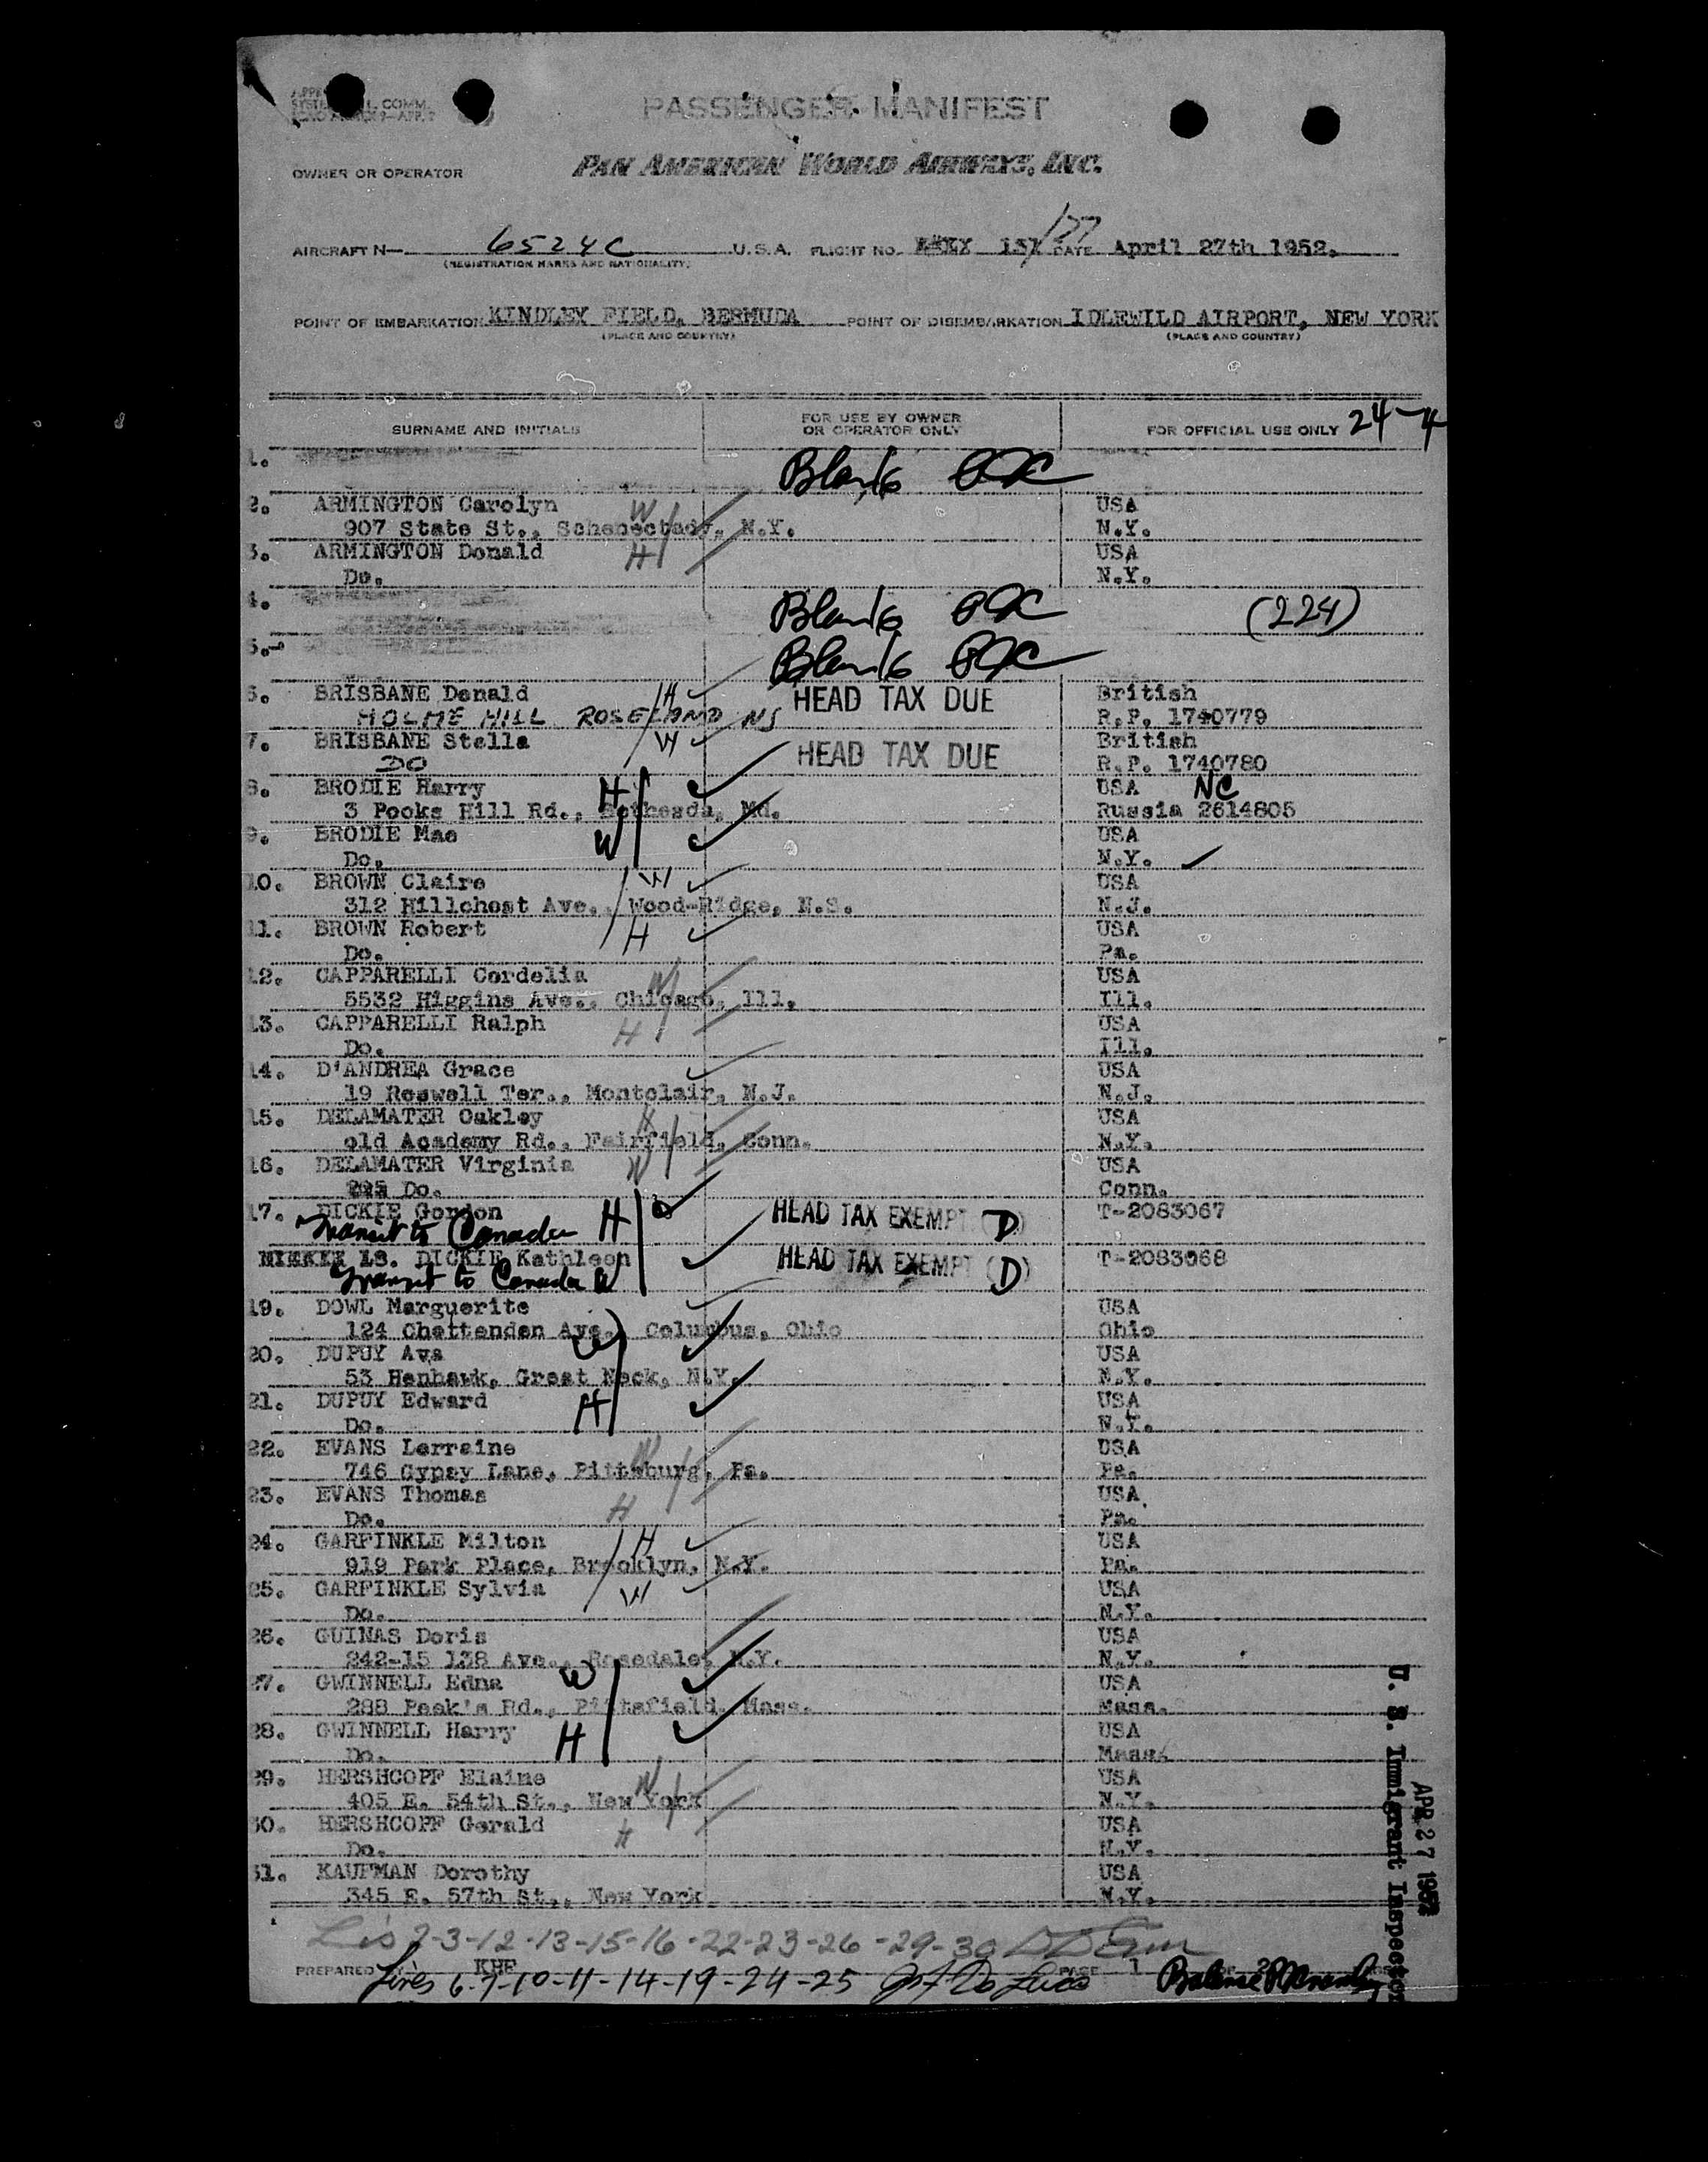 PASSENGER MANIFEST
OWNER OR OPERATOR PAN AMERICAN WORLD AIRWAYS, INC.
AIRCRAFT N— 6524C U.S.A. FLIGHT NO. 131/177 DATE April 27th 1952.
(REGISTRATION MARKS AND NATIONALITY)
POINT OF EMBARKATION KINDLEY FIELD, BERMUDA POINT OF DISEMBARKATION IDLEWILD AIRPORT, NEW YORK
(PLACE AND COUNTRY) (PLACE AND COUNTRY)
SURNAME AND INITIALS FOR USE BY OWNER OR OPERATOR ONLY FOR OFFICIAL USE ONLY 24-4
1. Blank
2. ARMINGTON Carolyn W USA
907 State St., Schenectady, N.Y. N.Y.
3. ARMINGTON Donald H USA
Do. N.Y.
4. Blank (224)
5. Blank
6. BRISBANE Donald H HEAD TAX DUE British
HOLME HILL ROSELAND NS R.P. 1740779
7. BRISBANE Stella W HEAD TAX DUE British
DO R.P. 1740780
8. BRODIE Harry H USA NC
3 Pooks Hill Rd., Bethesda, Md. Russia 2614805
9. BRODIE Mae W USA
Do. N.Y.
10. BROWN Claire W USA
312 Hillchest Ave., Wood-Ridge, N.S. N.J.
11. BROWN Robert H USA
Do. Pa.
12. CAPPARELLI Cordelia W USA
5532 Higgins Ave., Chicago, Ill. Ill.
13. CAPPARELLI Ralph H USA
Do. Ill.
14. D'ANDREA Grace USA
19 Roswell Ter., Montclair, N.J. N.J.
15. DELAMATER Oakley H USA
old Academy Rd., Fairfield, Conn. N.Y.
16. DELAMATER Virginia W USA
Do. Conn.
17. DICKIE Gordon H HEAD TAX EXEMPT (D) T-2083067
Transit to Canada
18. DICKIE Kathleen HEAD TAX EXEMPT (D) T-2083068
Transit to Canada W
19. DOWL Marguerite USA
124 Chattenden Ave., Columbus, Ohio Ohio
20. DUPUY Ava W USA
53 Henhawk, Great Neck, N.Y. N.Y.
21. DUPUY Edward H USA
Do. N.Y.
22. EVANS Lorraine W USA
746 Gypsy Lane, Pittsburg, Pa. Pa.
23. EVANS Thomas H USA
Do. Pa.
24. GARFINKLE Milton H USA
919 Park Place, Brooklyn, N.Y. Pa.
25. GARFINKLE Sylvia W USA
Do. N.Y.
26. GUINAS Doris USA
242-15 138 Ave., Rosedale, N.Y. N.Y.
27. GWINNELL Edna W USA
288 Peck's Rd., Pittsfield, Mass. Mass.
28. GWINNELL Harry H USA
Do. Mass.
29. HERSHCOPF Elaine W USA
405 E. 54th St., New York N.Y.
30. HERSHCOPF Gerald H USA
Do. N.Y.
31. KAUFMAN Dorothy USA
345 E. 57th St., New York N.Y.
U. S. Immigrant Inspector
APR 27 1952
2-3-12-13-15-16-22-23-26-29-30
PREPARED KHF PAGE 1
Lines 6-7-10-11-14-19-24-25 Balance